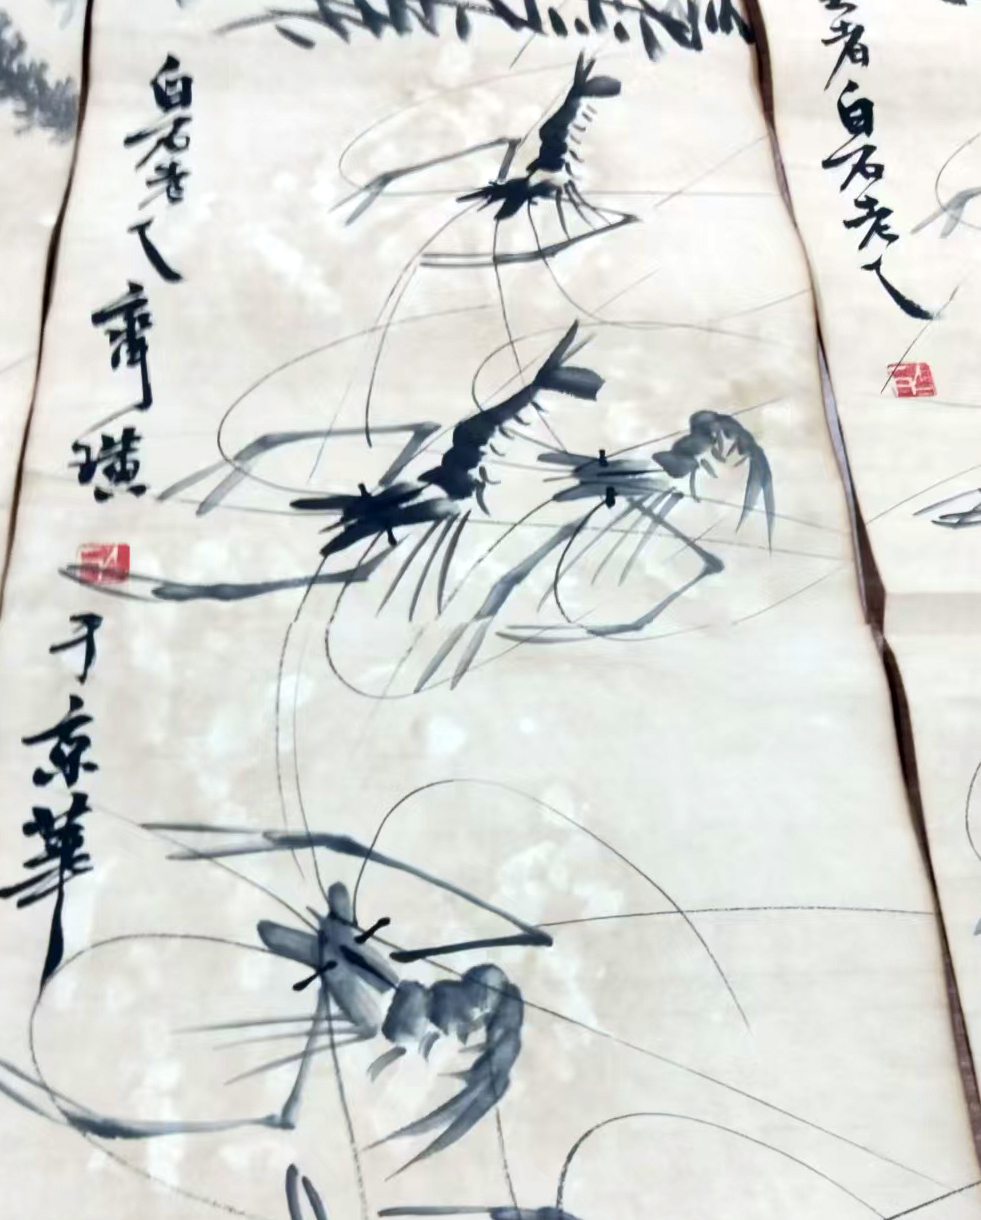 者白石老人
白石老人齊璜于京華